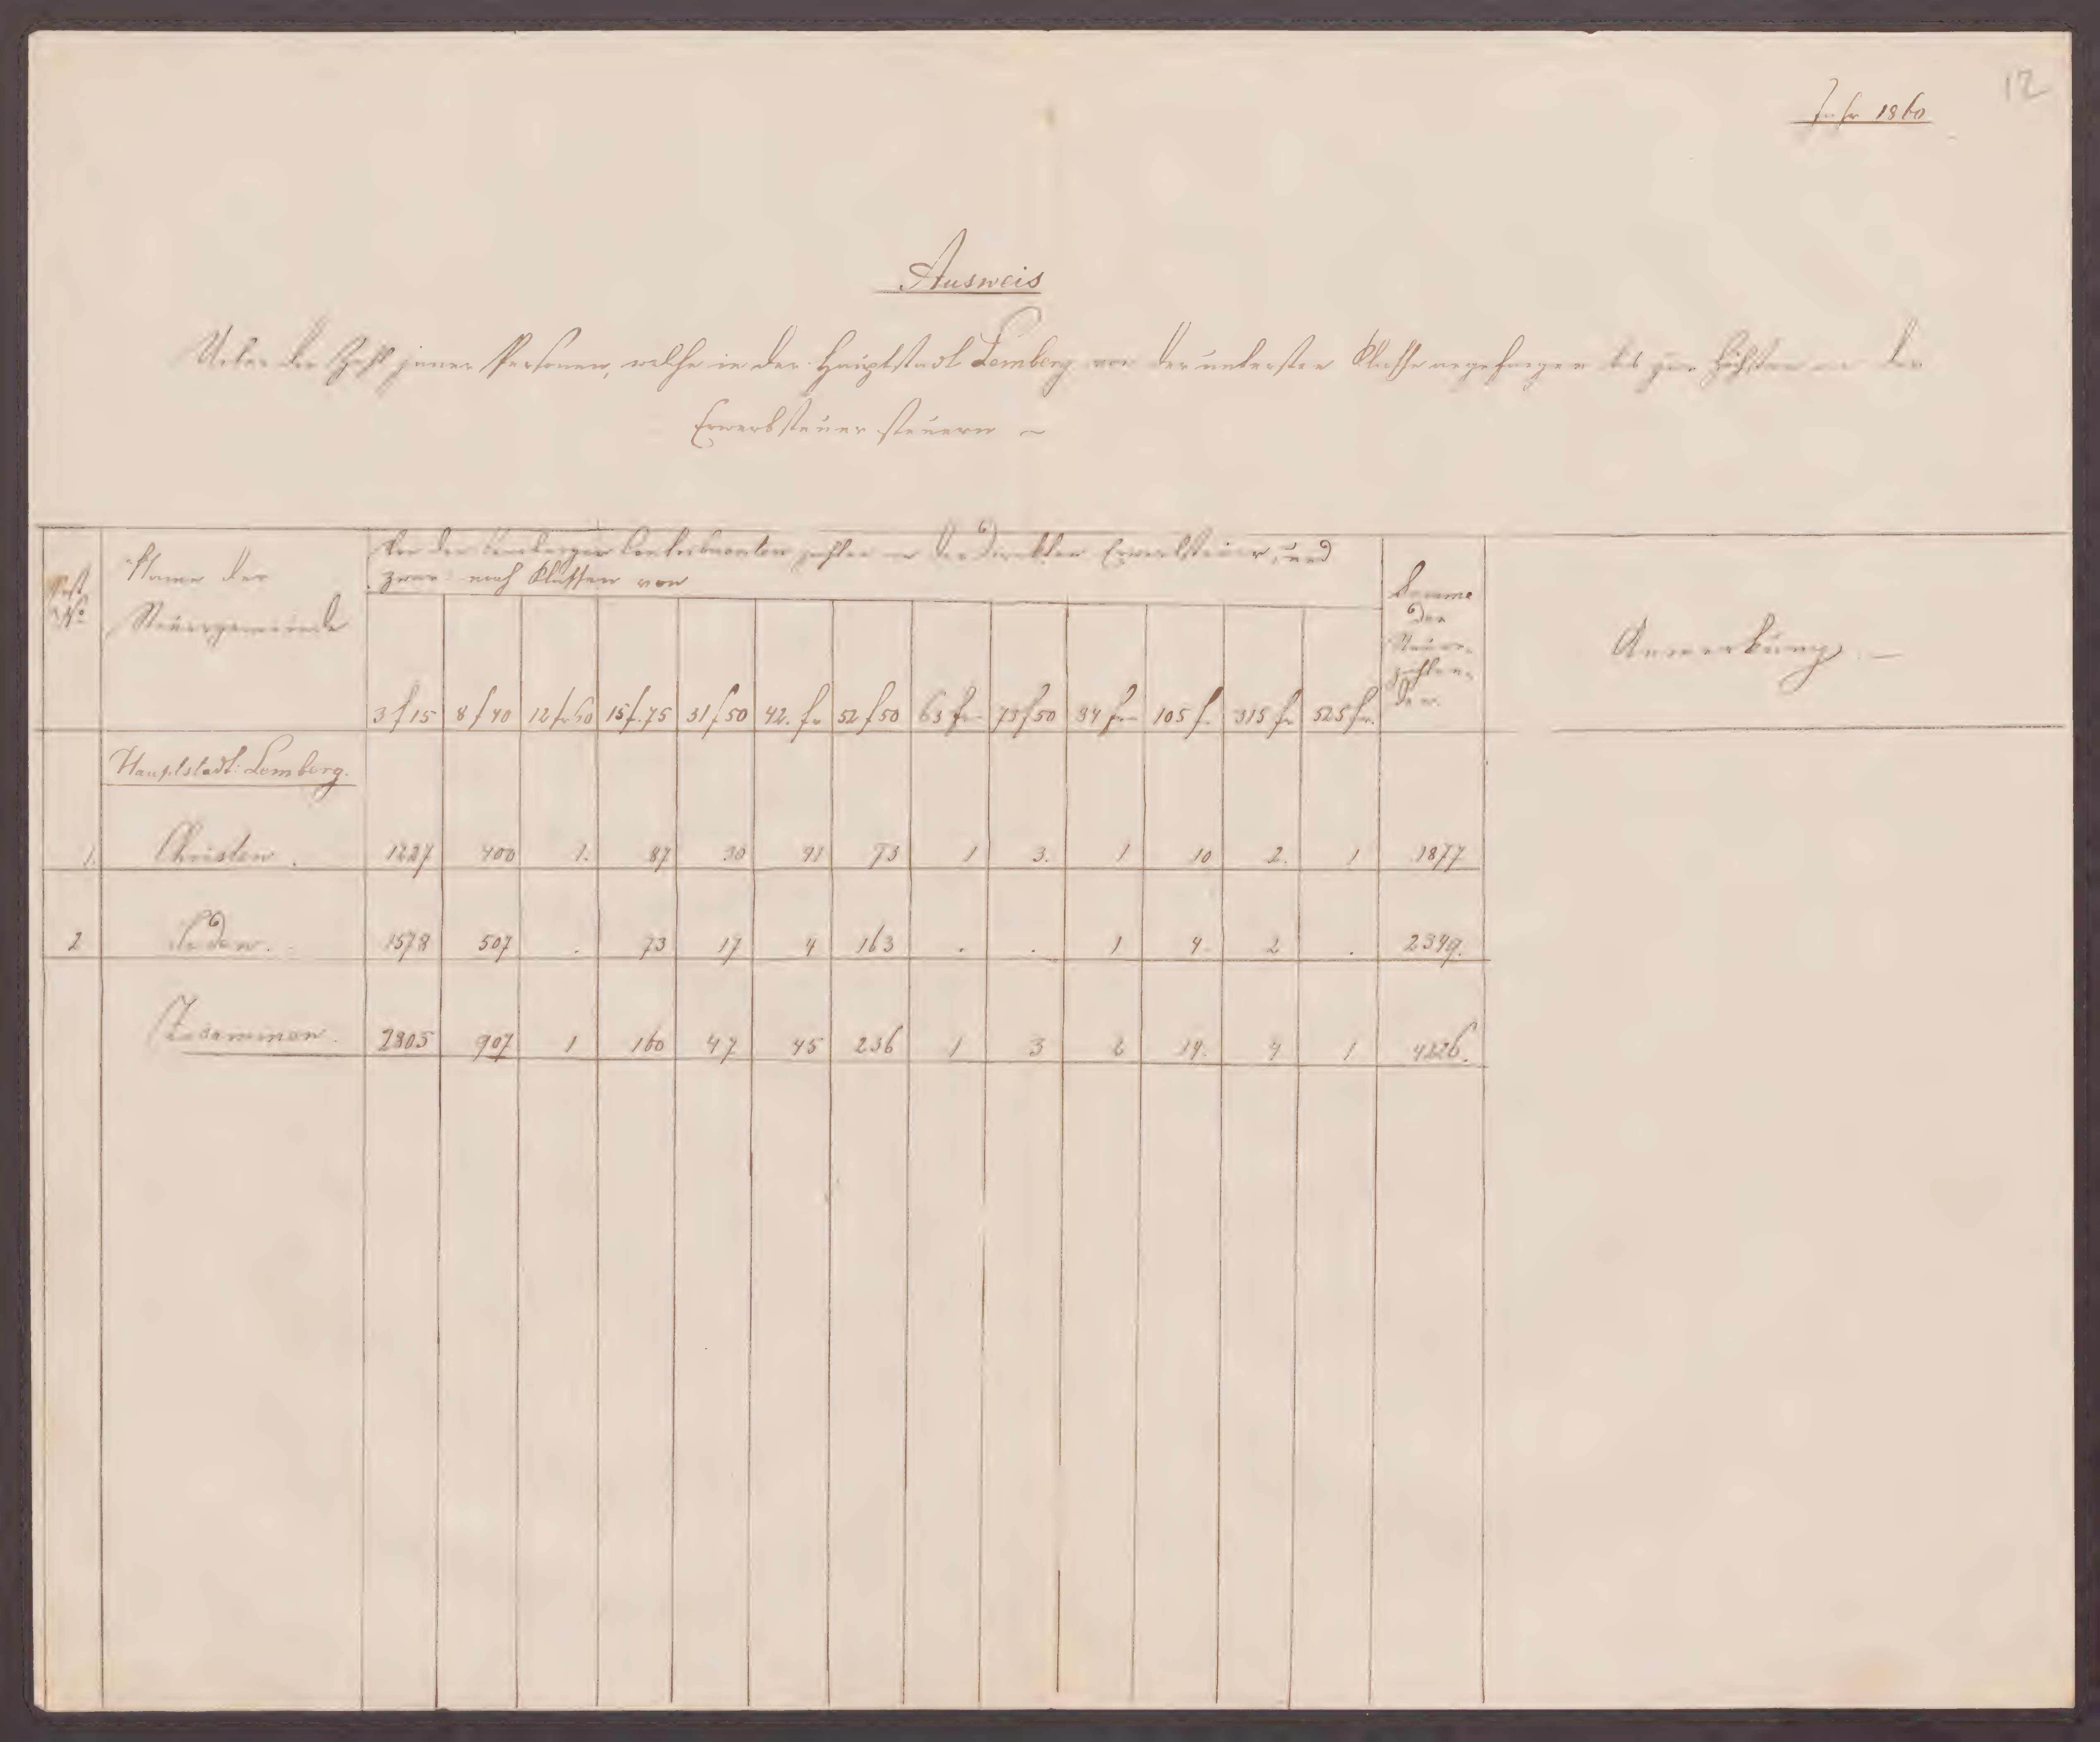 12
Jahr 1860
Ausweis
Ueber die Zahl jener Personen, welche in der Hauptstadt Lemberg von der untersten Klasse angefangen bis zur höchsten an der
Erwerbsteuer steuern –
Post No | Name der Steuergemeinde | Von den Lemberger Contribuenten zahlen an der direkten Erwerbsteuer, und zwar nach Klassen von | Summe der Steuerzahlenden | Anmerkung. –
3 f 15 | 8 f 40 | 12 fr 60 | 15 f. 75 | 31 f 50 | 42. fr | 52 f 50 | 63 fr – | 73 f 50 | 84 fr – | 105 f. | 315 fr | 525 fr.
Hauptstadt: Lemberg.
1. | Christen. | 1227 | 400 | 1. | 87 | 30 | 41 | 73 | 1 | 3. | 1 | 10 | 2. | 1 | 1877
2 | Juden. | 1578 | 507 | . | 73 | 17 | 4 | 163 | . | . | 1 | 4. | 2 | . | 2349.
Zusammen. | 2805 | 907 | 1 | 160 | 47 | 45 | 236 | 1 | 3 | 2 | 14. | 4 | 1 | 4226.